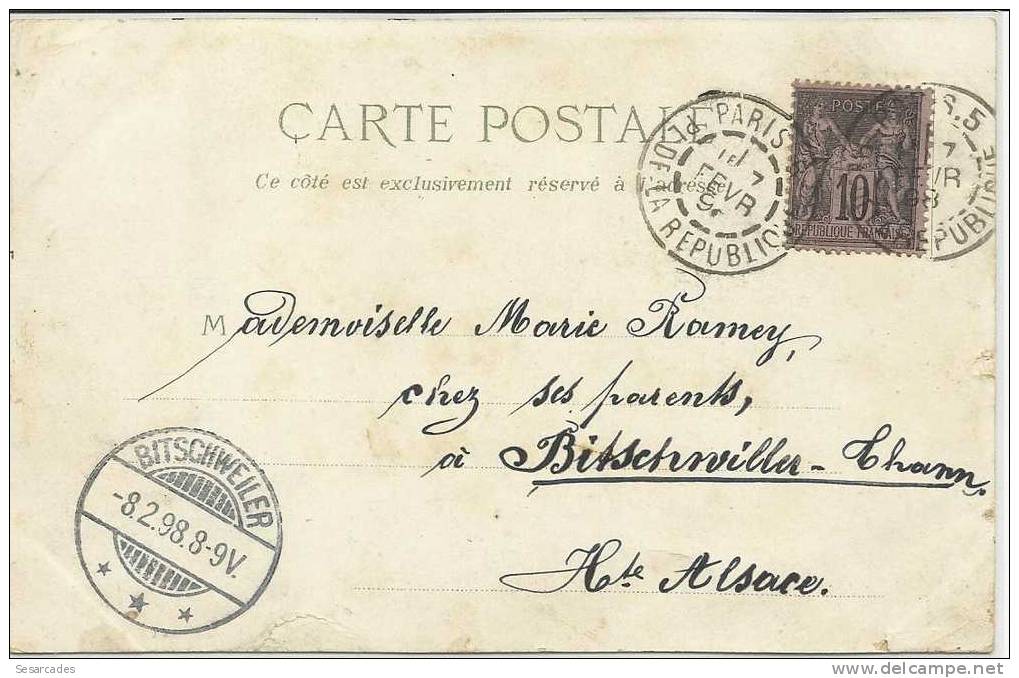 CARTE POSTALE
Ce côté est exclusivement réservé à l'adresse
PARIS
7
FEVR
PL. DE LA REPUBLIQUE
POSTES
10
REPUBLIQUE FRANÇAISE
5
7
EVR
98
PUBLIQUE
Mademoiselle Marie Ramey,
chez ses parents,
à Bitschwiller - Thann.
Hte Alsace.
BITSCHWEILER
-8.2.98.8-9V.
Sesarcades
delcampe.net